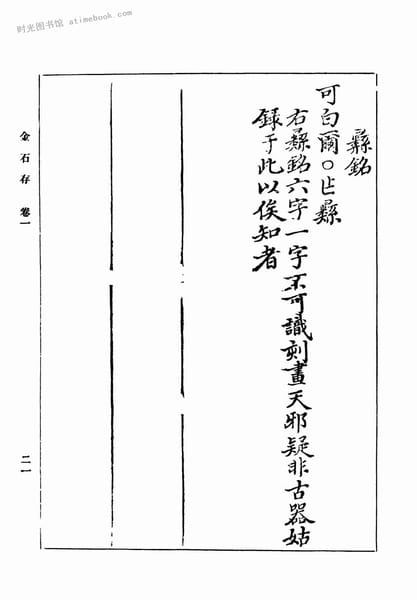 时光图书馆 atimebook.com
彝銘
可白爾○乍彝
右彝銘六字一字不可識刻畫天邪疑非古器姑
録于此以俟知者
金石存 卷一
二一